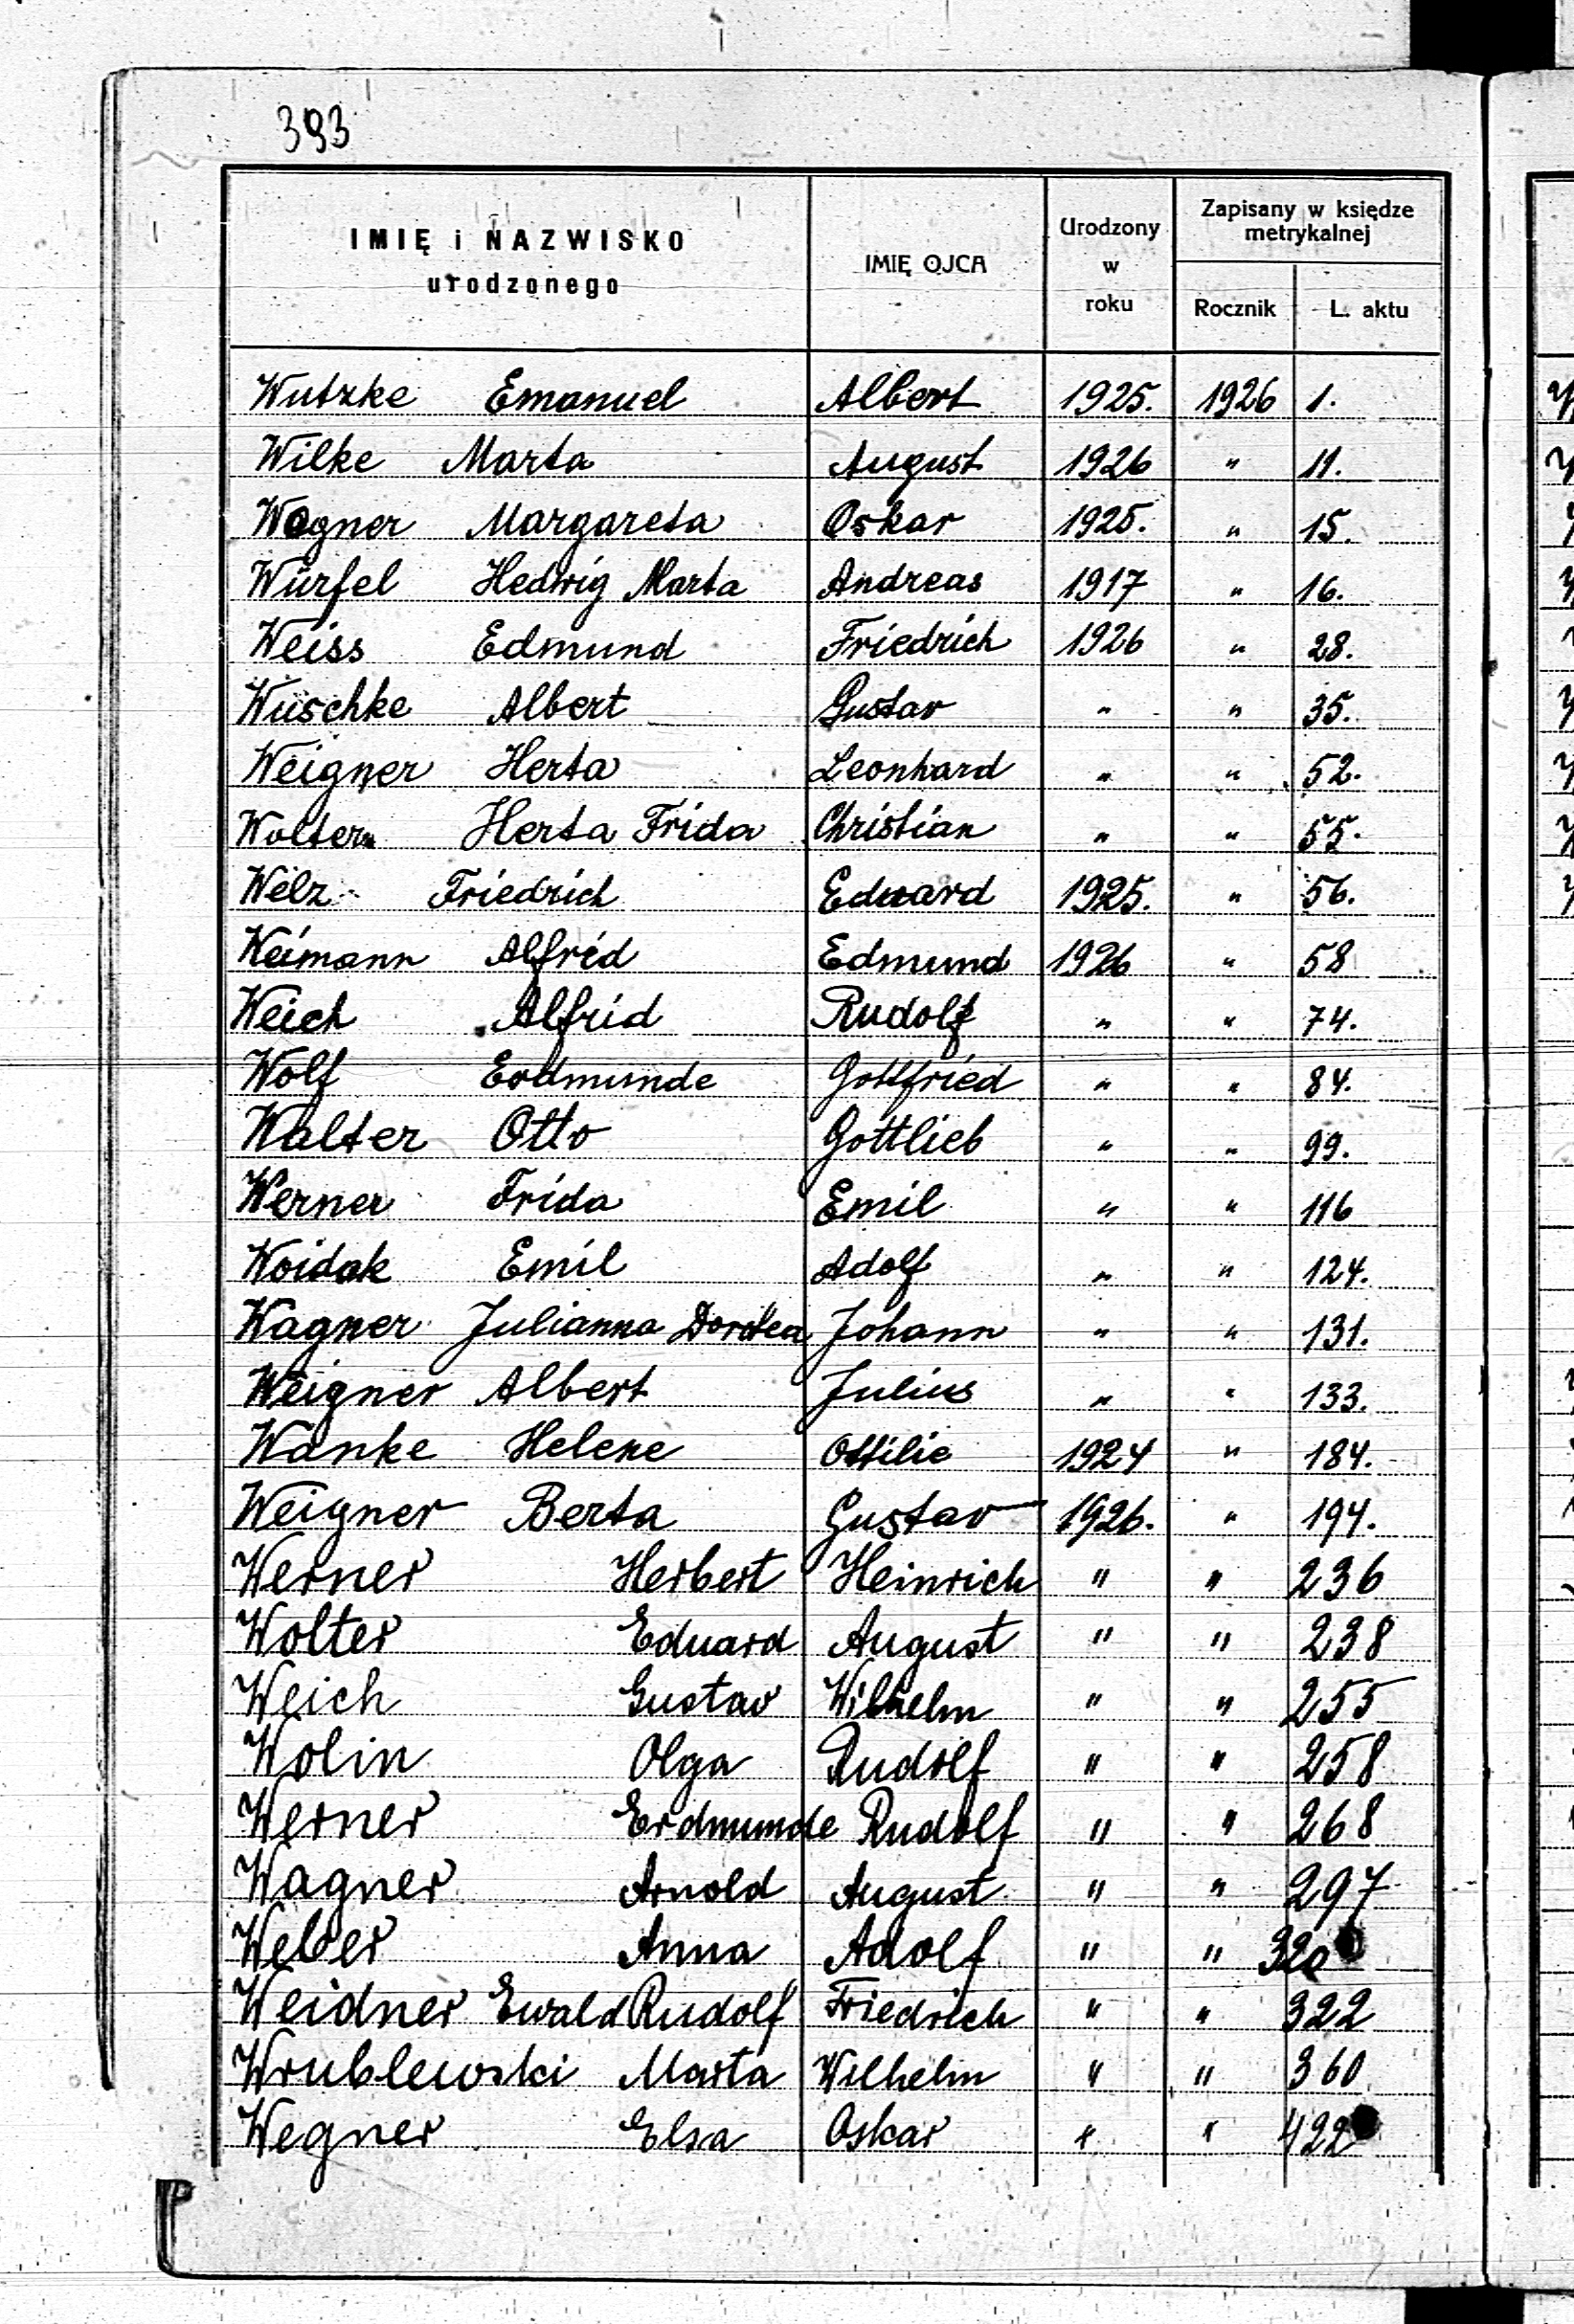 393
IMIĘ i NAZWISKO urodzonego IMIĘ OJCA Urodzony w roku Zapisany w księdze metrykalnej Rocznik L. aktu
Wutzke Emanuel Albert 1925. 1926 1.
Wilke Marta August 1926 " 11.
Wegner Margareta Oskar 1925. " 15.
Würfel Hedwig Marta Andreas 1917 " 16.
Weiss Edmund Friedrich 1926 " 28.
Wüschke Albert Gustav " " 35.
Weigner Herta Leonhard " " 52.
Wolter Herta Frida Christian " " 55.
Welz Friedrich Eduard 1925. " 56.
Weimann Alfrid Edmund 1926 " 58
Weich Alfrid Rudolf " " 74.
Wolf Erdmunde Gottfried " " 84.
Walter Otto Gottlieb " " 99.
Werner Frida Emil " " 116
Woidak Emil Adolf " " 124.
Wagner Julianna Dorotea Johann " " 131.
Weigner Albert Julius " " 133.
Wanke Helene Ottilie 1924 " 184.
Weigner Berta Gustav 1926. " 194.
Werner Herbert Heinrich " " 236
Wolter Eduard August " " 238
Weich Gustav Wilhelm " " 255
Wolin Olga Rudolf " " 258
Werner Erdmunde Rudolf " " 268
Wagner Arnold August " " 297
Weber Anna Adolf " " 320
Weidner Ewald Rudolf Friedrich " " 322
Wrublewski Marta Wilhelm " " 360
Wegner Elsa Oskar " " 422